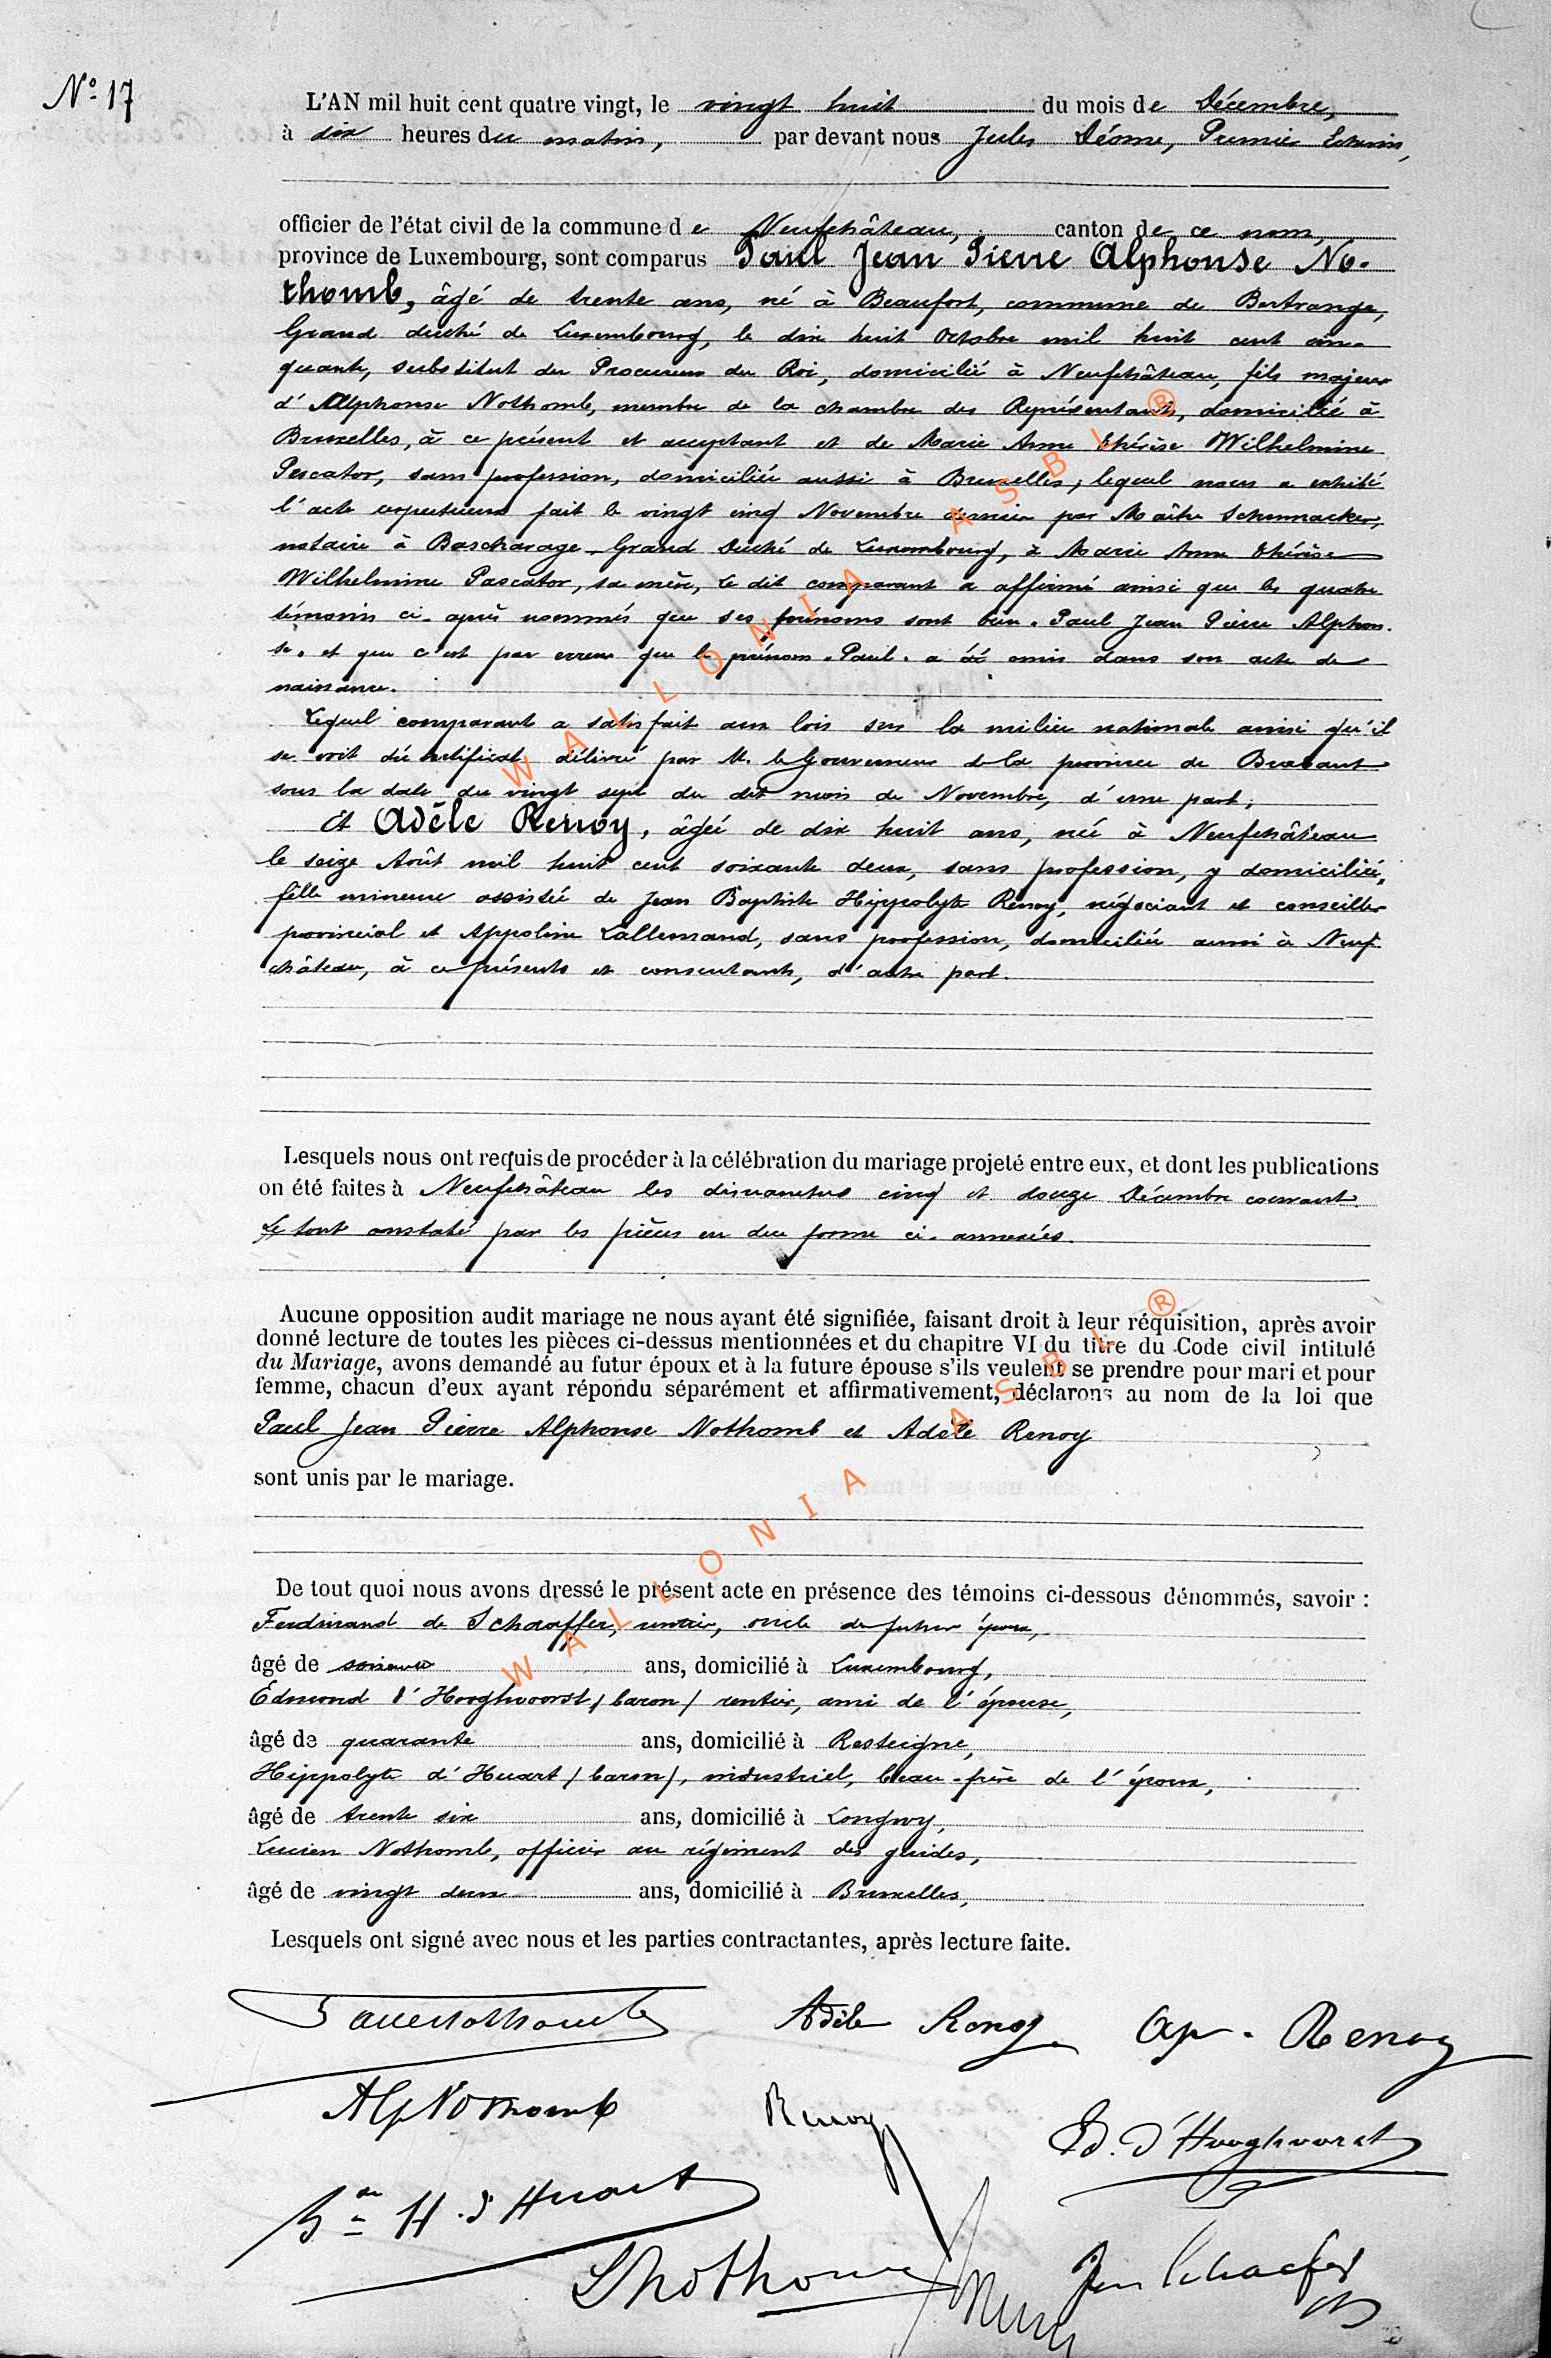 Nº 17
L'AN mil huit cent quatre vingt, le vingt huit du mois de Décembre,
à dix heures du matin, par devant nous Jules Déome, Premier Echevin,
officier de l'état civil de la commune de Neufchâteau, canton de ce nom,
province de Luxembourg, sont comparus Paul Jean Pierre Alphonse No-
thomb, âgé de trente ans, né à Beaufort, commune de Bertrange,
Grand duché de Luxembourg, le dix huit Octobre mil huit cent cin-
quante, substitut du Procureur du Roi, domicilié à Neufchâteau, fils majeur
d'Alphonse Nothomb, membre de la chambre des Représentants, domicilié à
Bruxelles, à ce présent et acceptant et de Marie Anne Thérèse Wilhelmine
Pescator, sans profession, domiciliée aussi à Bruxelles, lequel nous a exhibé
l'acte respectueux fait le vingt cinq Novembre dernier par Maître Schumacker,
notaire à Bascharage - Grand Duché de Luxembourg, à Marie Anne Thérèse
Wilhelmine Pascator, sa mère, Le dit comparant a affirmé ainsi que les quatre
témoins ci-après nommés que ses prénoms sont bien "Paul Jean Pierre Alphon-
se" et que c'est par erreur que le prénom "Paul" a été omis dans son acte de
naissance.
Lequel comparant a satisfait aux lois sur la milice nationale ainsi qu'il
se voit du certificat délivré par M. le Gouverneur de la province de Brabant
sous la date du vingt sept du dit mois de Novembre, d'une part;
Et Adèle Renoy, âgée de dix huit ans, née à Neufchâteau
le seize Août mil huit cent soixante deux, sans profession, y domiciliée,
fille mineure assistée de Jean Baptiste Hippolyte Renoy, négociant et conseiller
provincial et Appoline Lallemand, sans profession, domiciliés aussi à Neuf-
château, à ce présents et consentants, d'autre part.
Lesquels nous ont requis de procéder à la célébration du mariage projeté entre eux, et dont les publications
on été faites à Neufchâteau les dimanches cinq et douze Décembre courant.
Le tout constaté par les pièces en due forme ci-annexées.
Aucune opposition audit mariage ne nous ayant été signifiée, faisant droit à leur réquisition, après avoir
donné lecture de toutes les pièces ci-dessus mentionnées et du chapitre VI du titre du Code civil intitulé
du Mariage, avons demandé au futur époux et à la future épouse s'ils veulent se prendre pour mari et pour
femme, chacun d'eux ayant répondu séparément et affirmativement, déclarons au nom de la loi que
Paul Jean Pierre Alphonse Nothomb et Adèle Renoy
sont unis par le mariage.
De tout quoi nous avons dressé le présent acte en présence des témoins ci-dessous dénommés, savoir :
Ferdinand de Schaeffer, rentier, oncle du futur époux,
âgé de soixante ans, domicilié à Luxembourg,
Edmond d'Hooghvoorst (baron) rentier, ami de l'épouse,
âgé de quarante ans, domicilié à Resteigne,
Hippolyte d'Huart (baron), industriel, beau-frère de l'époux,
âgé de trente six ans, domicilié à Longwy,
Lucien Nothomb, officier au régiment des guides,
âgé de vingt deux ans, domicilié à Bruxelles,
Lesquels ont signé avec nous et les parties contractantes, après lecture faite.
Paul Nothomb Adèle Renoy Ap. Renoy
Alp Nothomb Renoy Ed. d'Hooghvorst
Bon H. d'Huart
L Nothomb
WALLONIA ASBL ®
WALLONIA ASBL ®